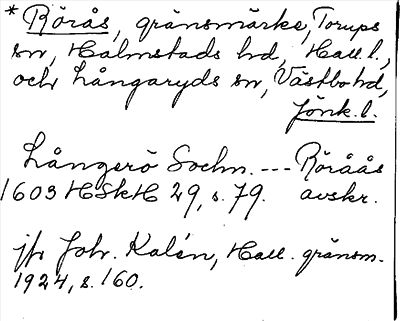 * Rörås, gränsmärke, Torups
sn, Halmstads hd, Hall. l.,
och Långaryds sn, Västbo hd,
Jönk. l.
Långerö Sochn. --- Röråås
1603 HSkH 29, s. 79. avskr.
jfr Joh. Kalén, Hall. gränsm.
1924, s. 160.